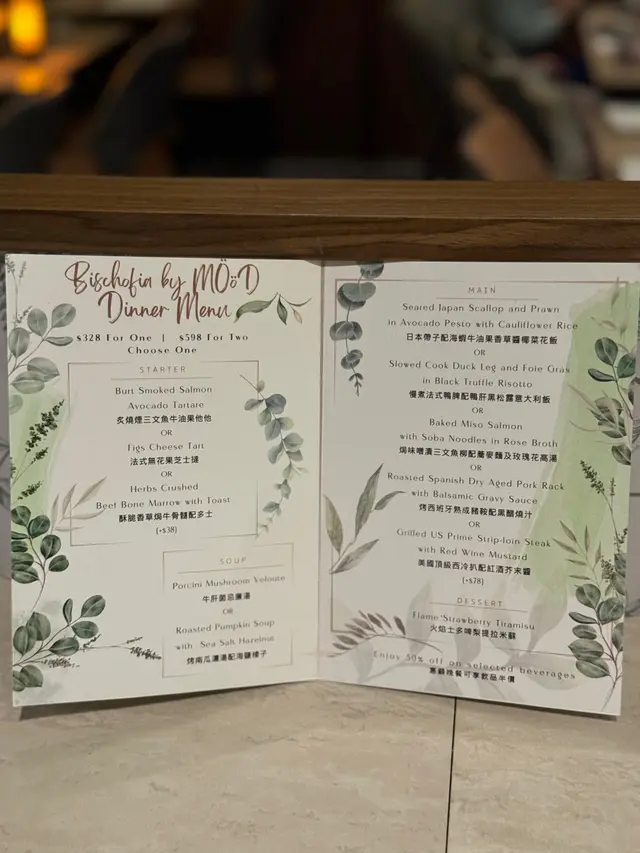 Bischofia by MÖöD
Dinner Menu
$328 For One | $598 For Two
Choose One
STARTER
Burt Smoked Salmon
Avocado Tartare
炙燒煙三文魚牛油果他他
OR
Figs Cheese Tart
法式無花果芝士撻
OR
Herbs Crushed
Beef Bone Marrow with Toast
酥脆香草焗牛骨髓配多士
(+$38)
SOUP
Porcini Mushroom Veloute
牛肝菌忌廉湯
OR
Roasted Pumpkin Soup
with Sea Salt Hazelnut
烤南瓜濃湯配海鹽榛子
MAIN
Seared Japan Scallop and Prawn
in Avocado Pesto with Cauliflower Rice
日本帶子配海蝦牛油果香草醬椰菜花飯
OR
Slowed Cook Duck Leg and Foie Gras
in Black Truffle Risotto
慢煮法式鴨脾配鴨肝黑松露意大利飯
OR
Baked Miso Salmon
with Soba Noodles in Rose Broth
焗味噌漬三文魚柳配蕎麥麵及玫瑰花高湯
OR
Roasted Spanish Dry Aged Pork Rack
with Balsamic Gravy Sauce
烤西班牙熟成豬鞍配黑醋燒汁
OR
Grilled US Prime Strip-loin Steak
with Red Wine Mustard
美國頂級西冷扒配紅酒芥末醬
(+$78)
DESSERT
Flame Strawberry Tiramisu
火焰士多啤梨提拉米蘇
Enjoy 50% off on selected beverages
惠顧晚餐可享飲品半價